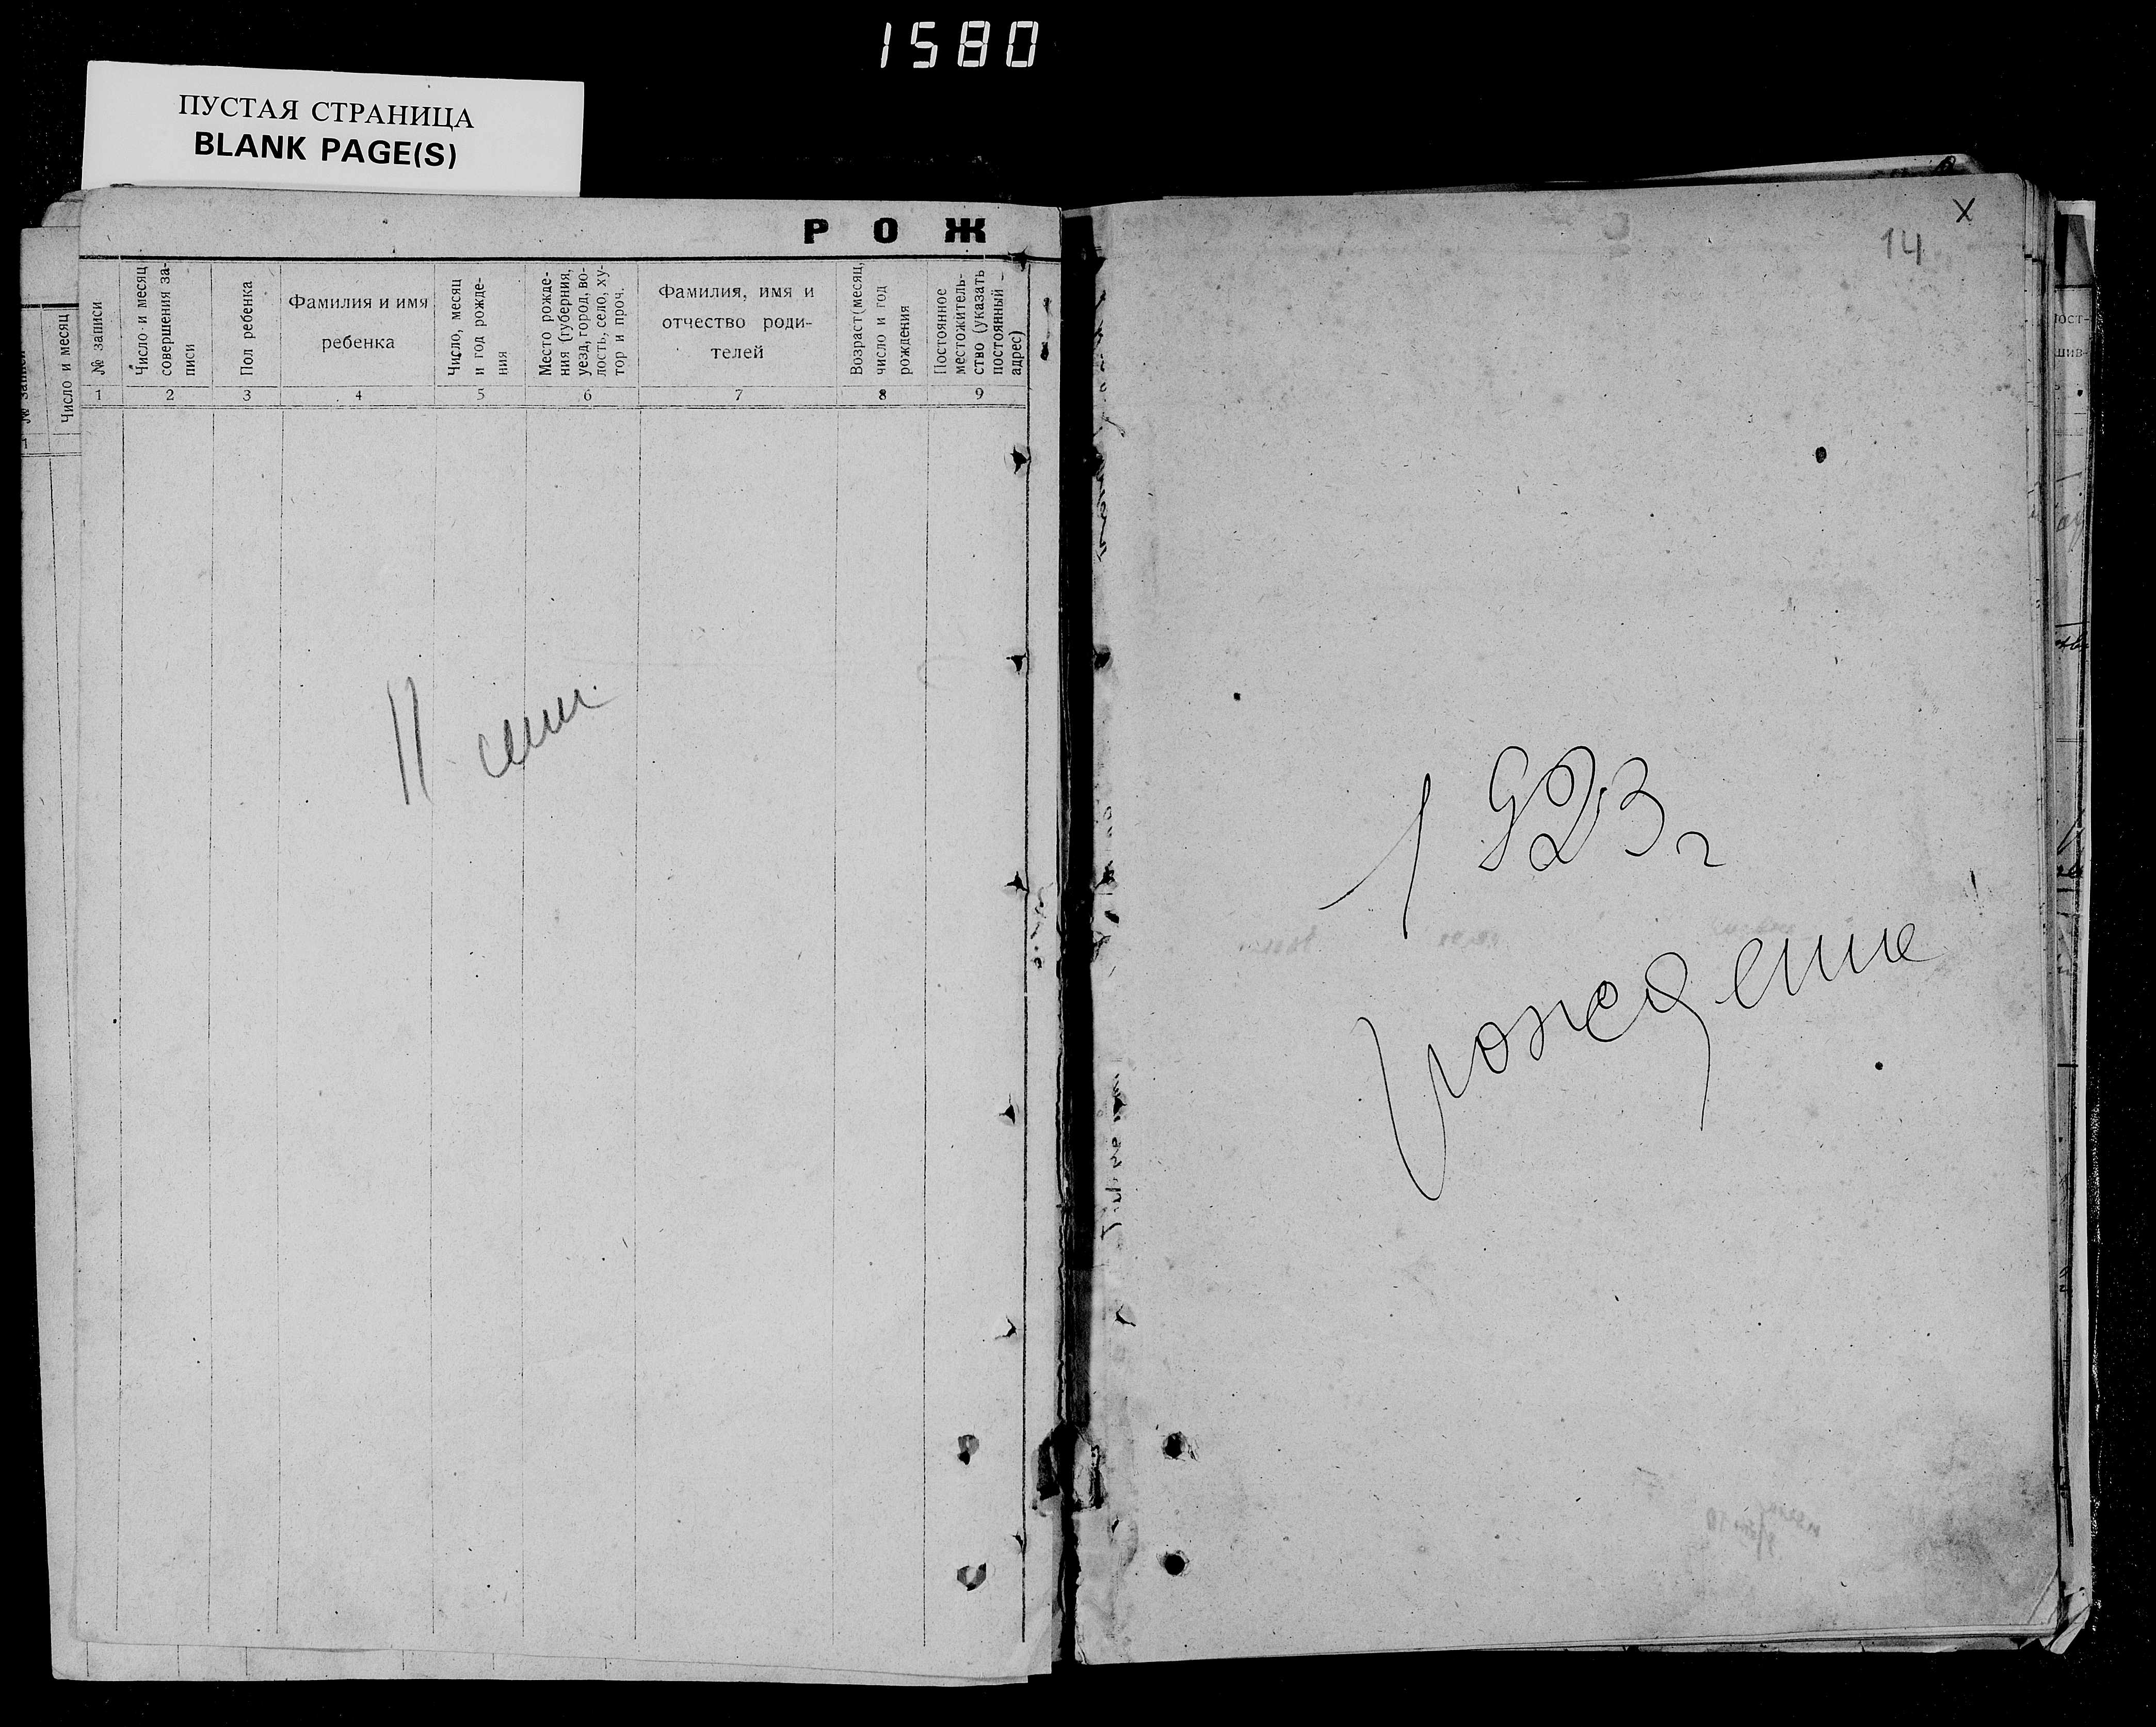 1580
ПУСТАЯ СТРАНИЦА
BLANK PAGE(S)
Р О Ж
№ записи
Число и месяц
совершения за-
писи
Пол ребенка
Фамилия и имя
ребенка
Число, месяц
и год рожде-
ния
Место рожде-
ния (губерния,
уезд, город, во-
лость, село, ху-
тор и проч.
Фамилия, имя и
отчество роди-
телей
Возраст (месяц,
число и год
рождения
Постоянное
местожитель-
ство (указать
постоянный
адрес)
1 2 3 4 5 6 7 8 9
№ записи
Число и месяц
1
х
14
1923 г
рождение